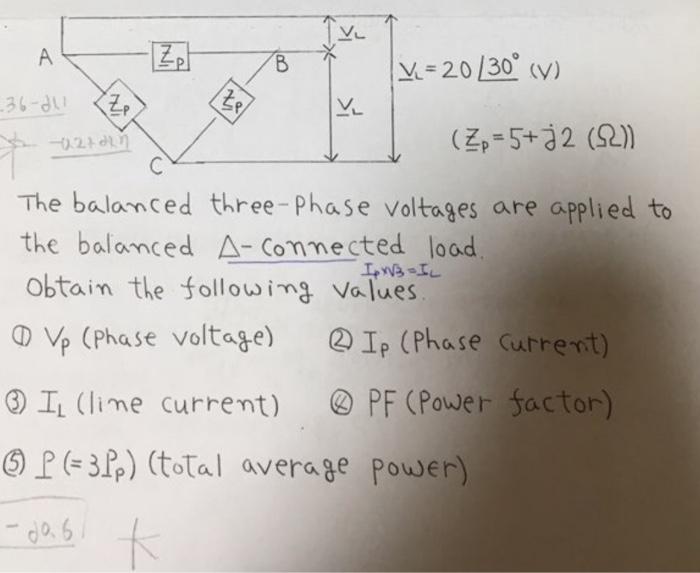 V_L
A
Z_P
B
V_L = 20∠30° (V)
Z_P
Z_P
V_L
(Z_P = 5 + j2 (Ω))
C
The balanced three-phase voltages are applied to
the balanced Δ-connected load.
I_P×√3=I_L
Obtain the following values.
① V_P (Phase voltage) ② I_P (Phase current)
③ I_L (line current) ④ PF (Power factor)
⑤ P (=3P_P) (total average power)
-j0.6